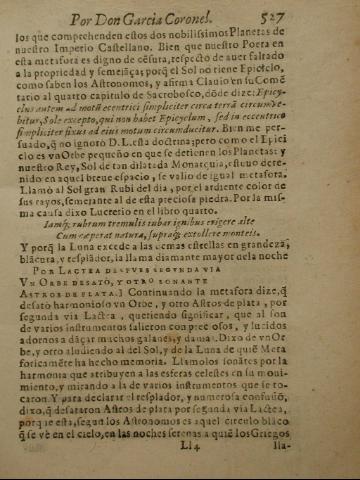 Por Don Garcia Coronel. 527
los que comprehenden estos dos nobilissimos Planetas de
nuestro Imperio Castellano. Bien que nuestro Poeta en
esta metafora es digno de cēsura, respecto de auer faltado
a la propriedad y semejāça; porq̃ el Sol no tiene Epiciclo,
como saben los Astronomos, y afirma Clauio en su Comē
tario al quarto capitulo de Sacrobosco, dōde dize: Epicy-
clus autem ad motū eccentrici simpliciter circa terrā circumve-
hitur, Sole excepto, qui non habet Epicyclum, sed in eccentrico
simpliciter fixus ad eius motum circumducitur. Bien me per-
suado, q̃ no ignorò D. L. esta doctrina; pero como el Epici
clo es vn Orbe pequeño en que se detienen los Planetas: y
nuestro Rey, Sol de tan dilatada Monarquia, estuuo dete-
nido en aquel breue espacio, se valio de igual metafora.
Llamò al Sol gran Rubi del dia, por el ardiente color de
sus rayos, semejante al de esta preciosa piedra. Por la mis-
ma causa dixo Lucrecio en el libro quarto.
Iamq; rubrum tremulis iubar ignibus erigere alte
Cum cœperat natura, supraq; extollere monteis.
Y porq̃ la Luna excede a las demas estrellas en grandeza,
blācura, y resplādor, la llama diamante mayor de la noche
POR LACTEA DESPVES SEGVNDA VIA
VN ORBE DESATÒ, Y OTRO SONANTE
ASTROS DE PLATA.] Continuando la metafora dize, q̃
desatò harmonioso vn Orbe, y otro Astros de plata, por
segunda via Lactea, queriendo significar, que al son
de varios instrumentos salieron con preciosos, y lucidos
adornos a dāçar muchos galanes, y damas. Dixo de vn Or-
be, y otro aludiendo al del Sol, y de la Luna de quiē Meta
foricamēte ha hecho memoria. Llamolos sonātes por la
harmonia que atribuyen a las esferas celestes en su moui-
miento, y mirando a la de varios instrumentos que se to-
caron. Y para declarar el resplādor, y numerosa confusiō,
dixo, q̃ desataron Astros de plata por segunda via Lactea,
porque esta, segun los Astronomos es aquel circulo blāco
q̃ se vè en el cielo, en las noches serenas a quiē los Griegos
Ll4 lla-